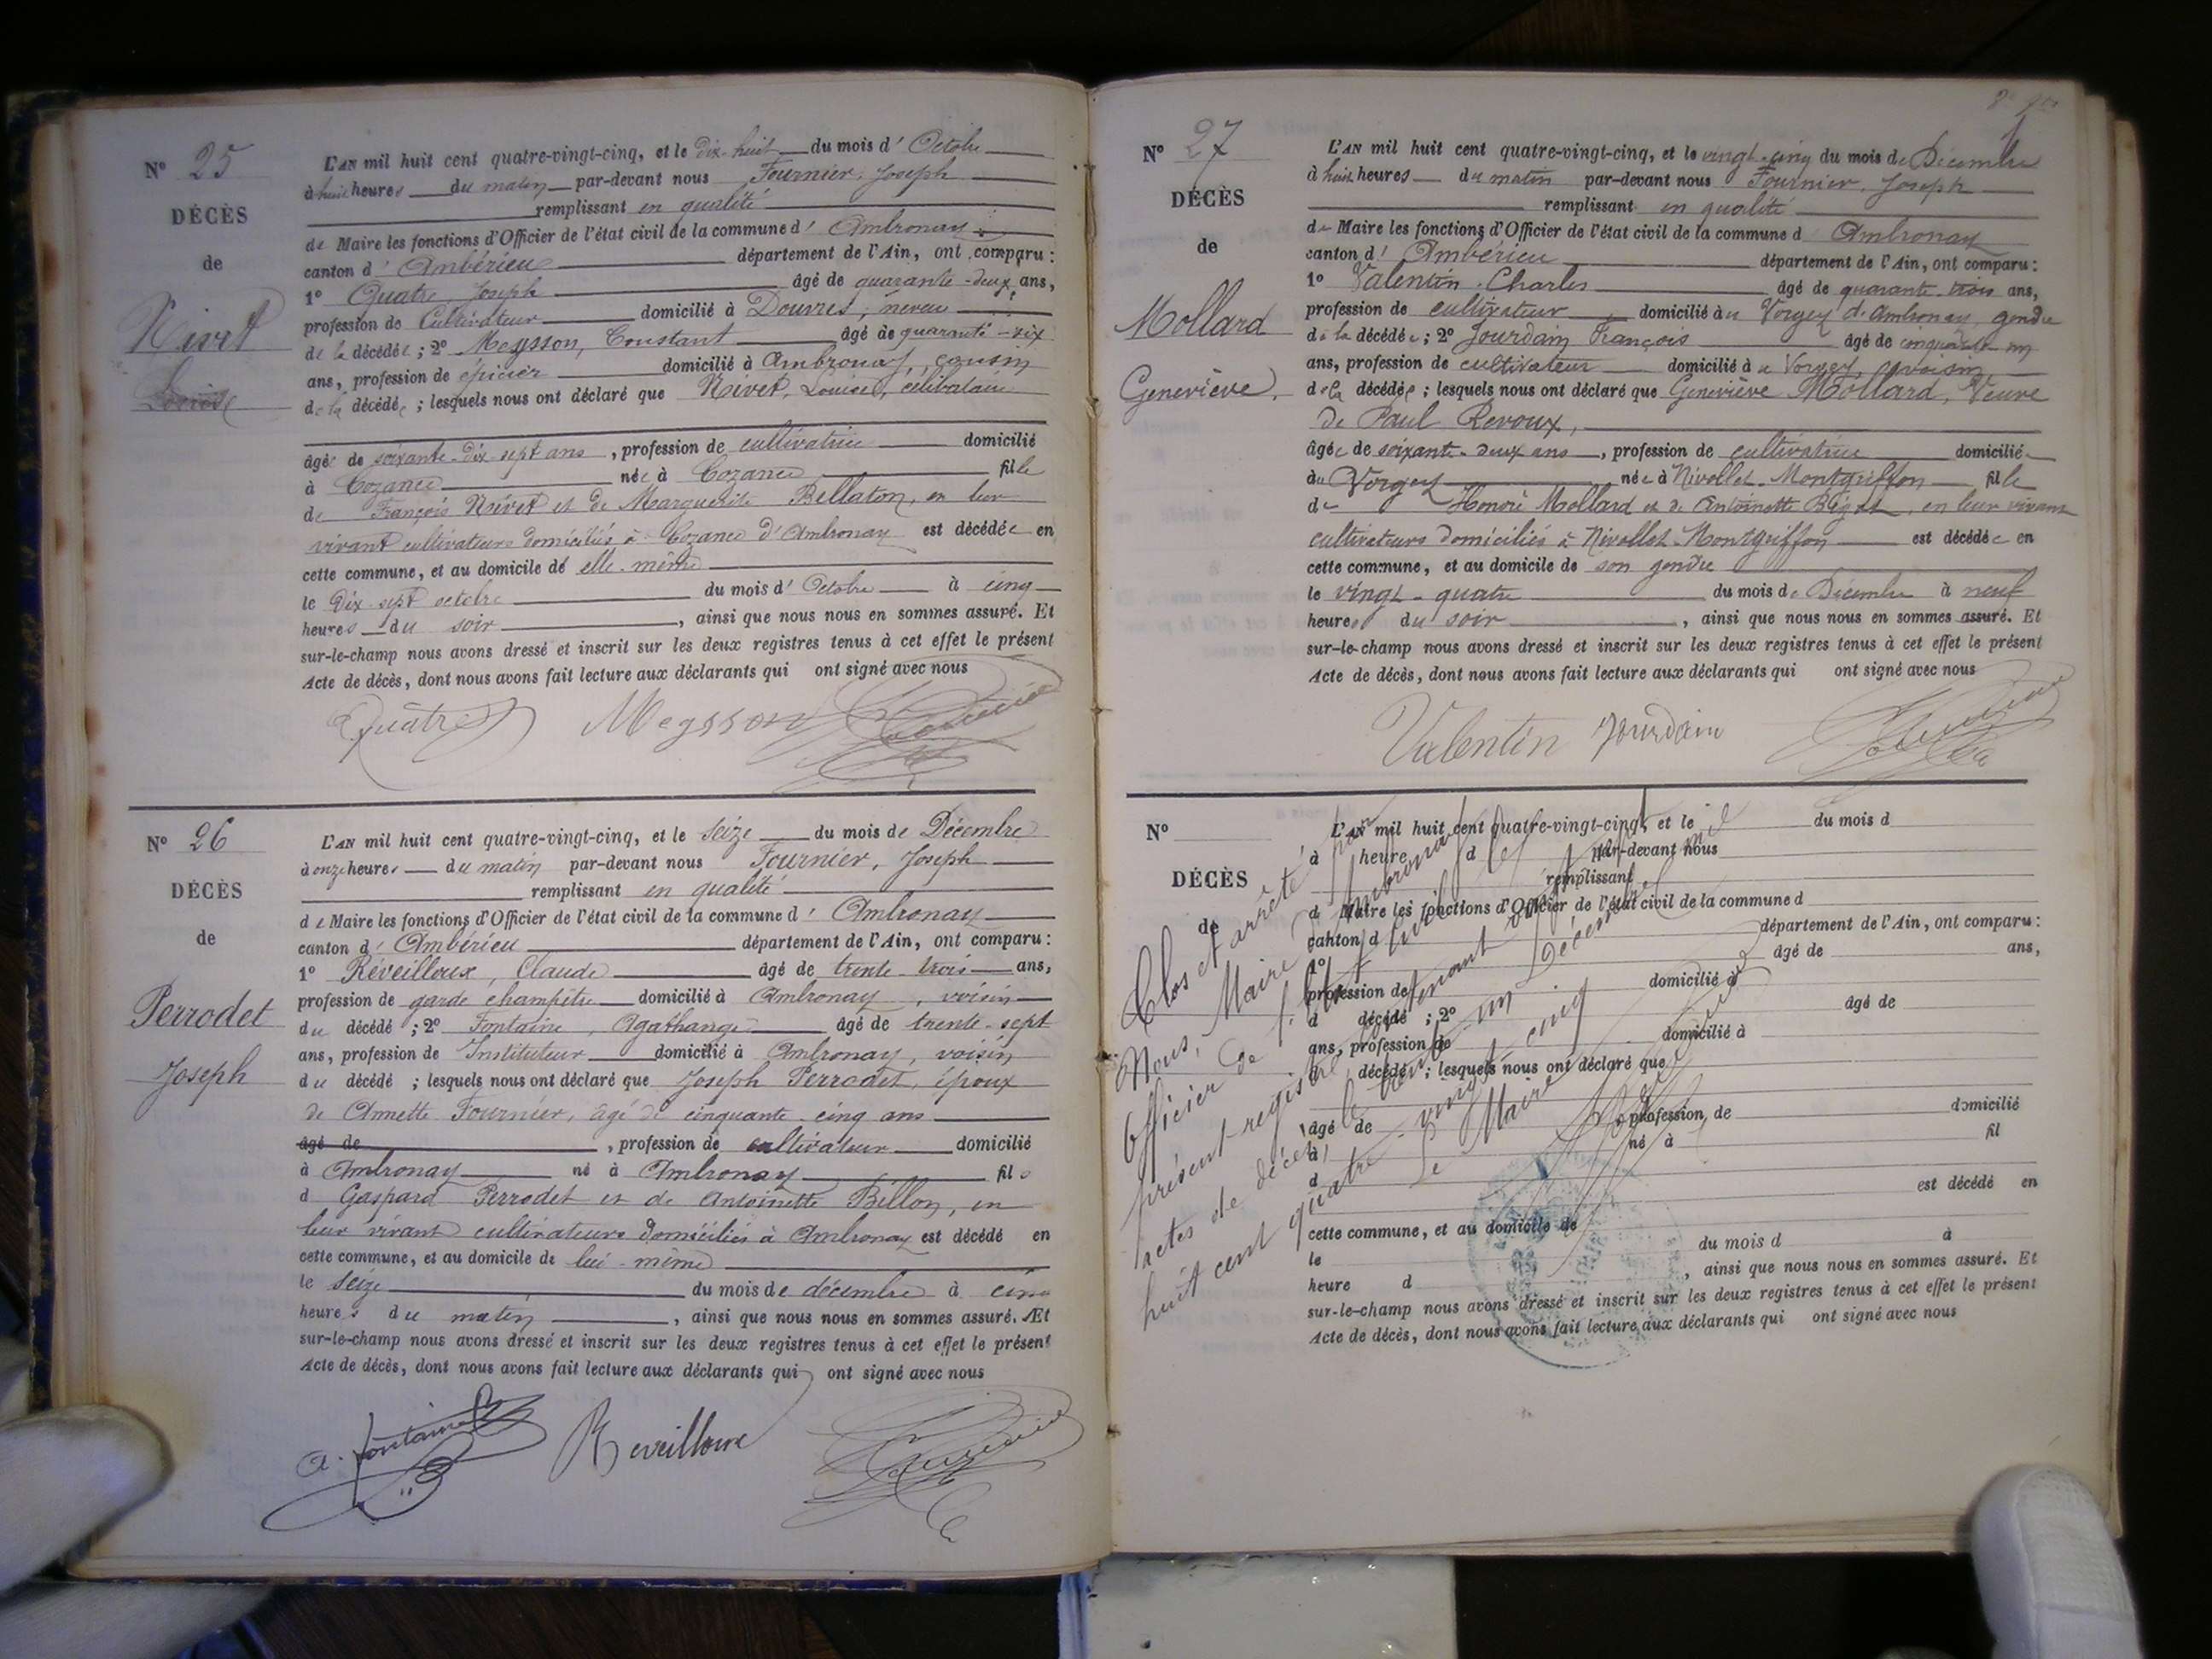 N° 25
DÉCÈS
de
Nivet
Louise
L'AN mil huit cent quatre-vingt-cinq, et le dix-huit du mois d'Octobre
à huit heures du matin par-devant nous Fournier, Joseph
remplissant en qualité
de Maire les fonctions d'Officier de l'état civil de la commune d'Ambronay
canton d'Ambérieu département de l'Ain, ont comparu :
1° Quatre, Joseph âgé de quarante-deux ans,
profession de Cultivateur domicilié à Douvres, neveu
de la décédée ; 2° Meysson, Constant âgé de quarante-six
ans, profession de épicier domicilié à Ambronay, cousin
de la décédée ; lesquels nous ont déclaré que Nivet, Louise, célibataire
âgée de soixante-dix-sept ans, profession de cultivatrice domicilié
à Cozance née à Cozance fille
de François Nivet et de Marguerite Bellaton, en leur
vivant cultivateurs domiciliés à Cozance d'Ambronay est décédée en
cette commune, et au domicile de elle-même
le Dix-sept octobre du mois d'Octobre à cinq
heures du soir, ainsi que nous nous en sommes assuré. Et
sur-le-champ nous avons dressé et inscrit sur les deux registres tenus à cet effet le présent
Acte de décès, dont nous avons fait lecture aux déclarants qui ont signé avec nous
Quatre Meysson Fournier
N° 26
DÉCÈS
de
Perrodet
Joseph
L'AN mil huit cent quatre-vingt-cinq, et le Seize du mois de Décembre
à onze heures du matin par-devant nous Fournier, Joseph
remplissant en qualité
de Maire les fonctions d'Officier de l'état civil de la commune d'Ambronay
canton d'Ambérieu département de l'Ain, ont comparu :
1° Réveilloux, Claude âgé de trente-trois ans,
profession de garde champêtre domicilié à Ambronay, voisin
du décédé ; 2° Fontaine, Agathange âgé de trente-sept
ans, profession de Instituteur domicilié à Ambronay, voisin
du décédé ; lesquels nous ont déclaré que Joseph Perrodet, époux
de Annette Fournier, âgé de cinquante-cinq ans
âgé de , profession de cultivateur domicilié
à Ambronay né à Ambronay fils
d Gaspard Perrodet et de Antoinette Billon, en
leur vivant cultivateurs domiciliés à Ambronay est décédé en
cette commune, et au domicile de lui-même
le Seize du mois de décembre à cinq
heures du matin, ainsi que nous nous en sommes assuré. Et
sur-le-champ nous avons dressé et inscrit sur les deux registres tenus à cet effet le présent
Acte de décès, dont nous avons fait lecture aux déclarants qui ont signé avec nous
A. Fontaine Reveilloux Fournier
N° 27
DÉCÈS
de
Mollard
Geneviève.
L'AN mil huit cent quatre-vingt-cinq, et le vingt-cinq du mois de Décembre
à huit heures du matin par-devant nous Fournier, Joseph
remplissant en qualité
de Maire les fonctions d'Officier de l'état civil de la commune d Ambronay
canton d'Ambérieu département de l'Ain, ont comparu :
1° Valentin Charles âgé de quarante-trois ans,
profession de cultivateur domicilié au Vorgey d'Ambronay, gendre
de la décédée ; 2° Jourdain François âgé de cinquante-un
ans, profession de cultivateur domicilié au Vorgey, voisin
de la décédée ; lesquels nous ont déclaré que Geneviève Mollard, Veuve
de Paul Revoux,
âgée de soixante-deux ans, profession de cultivatrice domicilié
au Vorgey née à Nivollet-Montgriffon fille
de Honoré Mollard et de Antoinette, en leur vivant
cultivateurs domiciliés à Nivollet-Montgriffon est décédée en
cette commune, et au domicile de son gendre
le vingt-quatre du mois de Décembre à neuf
heures du soir, ainsi que nous nous en sommes assuré. Et
sur-le-champ nous avons dressé et inscrit sur les deux registres tenus à cet effet le présent
Acte de décès, dont nous avons fait lecture aux déclarants qui ont signé avec nous
Valentin Jourdain Fournier
N°
DÉCÈS
de
L'AN mil huit cent quatre-vingt-cinq, et le du mois d
à heure d par-devant nous
remplissant
d Maire les fonctions d'Officier de l'état civil de la commune d
canton d département de l'Ain, ont comparu :
1° âgé de ans,
profession de domicilié à
d décédé ; 2° âgé de
ans, profession de domicilié à
d décédé ; lesquels nous ont déclaré que
âgé de , profession de domicilié
à né à fil
d est décédé en
cette commune, et au domicile de
le du mois d à
heure d , ainsi que nous nous en sommes assuré. Et
sur-le-champ nous avons dressé et inscrit sur les deux registres tenus à cet effet le présent
Acte de décès, dont nous avons fait lecture aux déclarants qui ont signé avec nous
Clos et arrêté par
Nous, Maire d'Ambronay
Officier de l'Etat Civil le
présent registre contenant vingt-sept
actes de décès, le trente-un Décembre mil
huit cent quatre-vingt-cinq
Le Maire